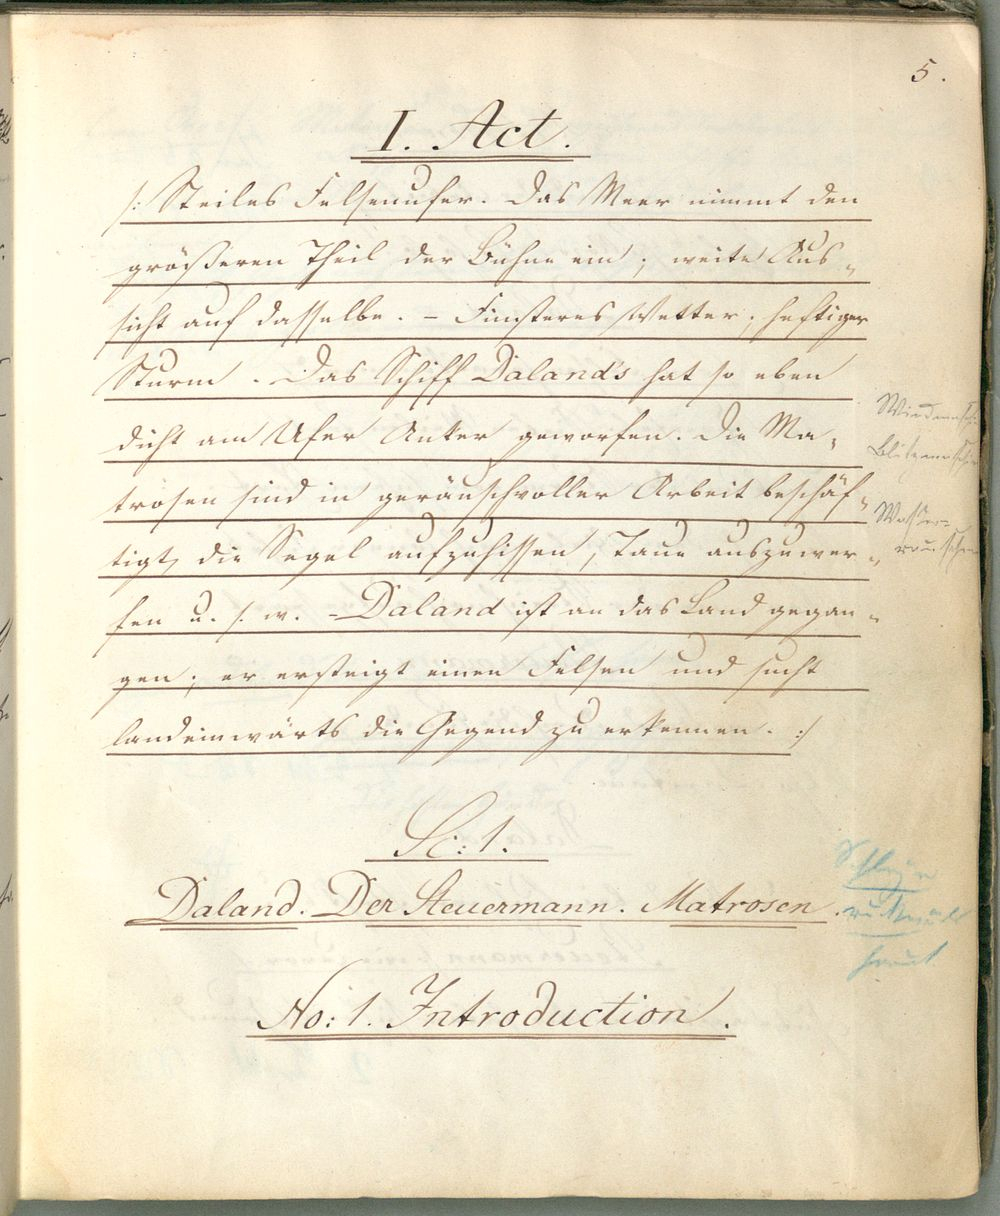 5.
I. Act.
/: Steiles Felsenufer. Das Meer nimmt den
größeren Theil der Bühne ein; weite Aus-
sicht auf dasselbe. – Finsteres Wetter; heftiger
Sturm. Das Schiff Dalands hat so eben
dicht am Ufer Anker geworfen. Die Ma-
trosen sind in geräuschvoller Arbeit beschäf-
tigt, die Segel aufzuhissen, Taue auszuwer-
fen u. s. w. – Daland ist an das Land gegan-
gen; er ersteigt einen Felsen und sucht
landeinwärts die Gegend zu erkennen. :/
Windmaschi
Blitzmaschi
Wasser-
rauschen
Sc: 1.
Daland. Der Steuermann. Matrosen.
No: 1. Introduction.